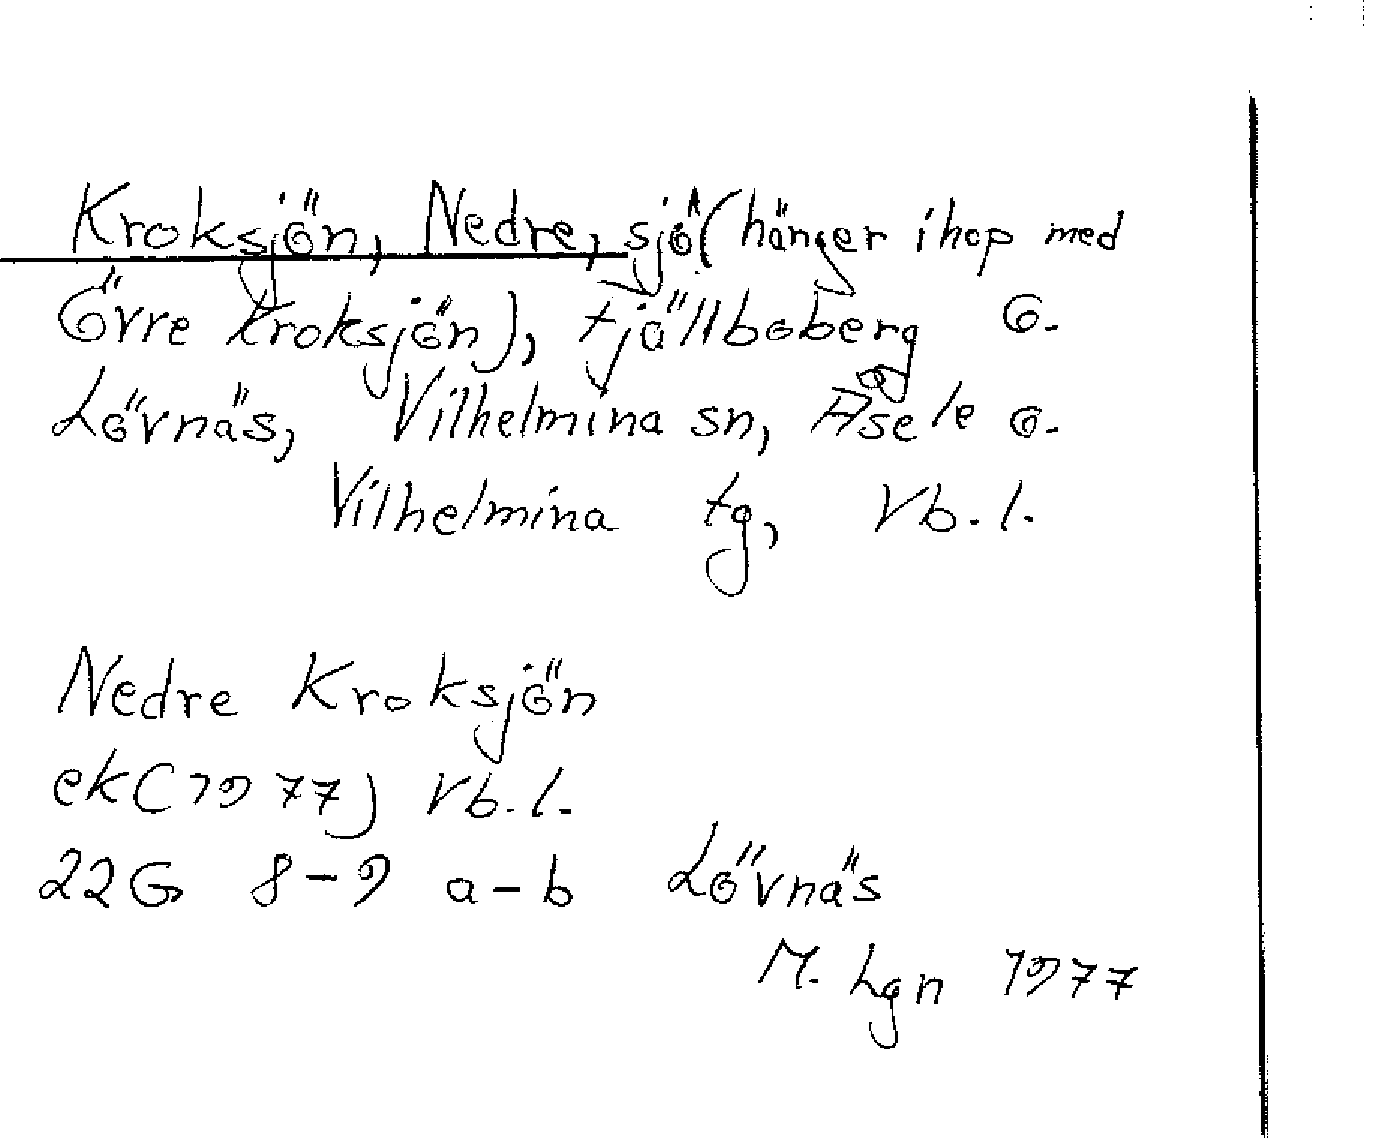 Kroksjön, Nedre, sjö (hänger ihop med
Övre Kroksjön), tjällboberg o.
Lövnäs, Vilhelmina sn, Åsele o.
Vilhelmina tg, Vb. l.
Nedre Kroksjön
ek (1977) Vb. l.
22G 8-9 a-b Lövnäs
M. Lgn 1977